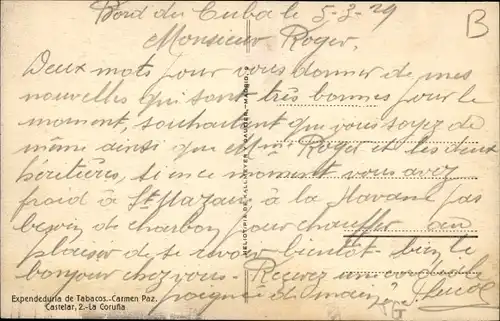 Bord du Cuba le 5-3-29
B
Monsieur Roger,
Deux mots pour vous donner de mes
nouvelles qui sont très bonnes pour le
moment, souhaitent que vous soyez de
même ainsi que Mme Roger et les deux
héritières, si en ce moment vous avez
froid à St Nazaire à la Havane pas
besoin de charbon pour chauffer au
plaisir de se revoir bientôt bien le
bonjour chez vous. Recevez une cordiale
poignée de main
HELIOTIPIA DE KALLMEYER Y GAUTIER.-MADRID
Expendeduría de Tabacos.-Carmen Paz.
Castelar, 2.-La Coruña